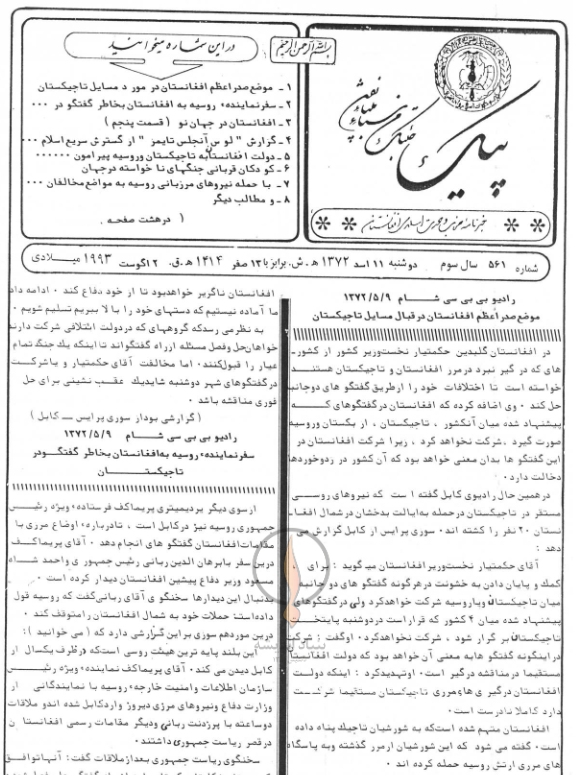 بسم الله الرحمن الرحیم
پیک
خبرنامه حزب وحدت اسلامی افغانستان
در این شماره میخوانید
۱ - موضع صدر اعظم افغانستان در مورد مسایل تاجیکستان
۲ - سفر نماینده ٔ روسیه به افغانستان بخاطر گفتگو در ۰۰۰
۳ - افغانستان در جهان نو ( قسمت پنجم )
۴ - گزارش " لوس آنجلس تایمز " از گسترش سریع اسلام ۰۰۰
۵ - دولت افغانستان به تاجیکستان وروسیه پیرامون ۰۰۰۰۰۰
۶ - کودکان قربانی جنگهای نا خواسته درجهان
۷ - با حمله نیروهای مرزبانی روسیه به مواضع مخالفان ۰۰۰
۸ - و مطالب دیگر
( درهشت صفحه )
شماره ۵۶۱ سال سوم دوشنبه ۱۱ اسد ۱۳۷۲ ه‍ ۰ ش ۰ برابر با ۱۳ صفر ۱۴۱۴ ه‍ ۰ ق ۰ ۲ اگوست ۱۹۹۳ میلادی
رادیو بی بی سی شام ۱۳۷۲/۵/۹
موضع صدر اعظم افغانستان در قبال مسایل تاجیکستان
در افغانستان گلبدین حکمتیار نخست وزیر کشور از کشور-
های که در گیر نبرد در مرز افغانستان و تاجیکستان هستند
خواسته است تا اختلافات خود را از طریق گفتگو های دوجانبه
حل کند ۰ وی اضافه کرده که افغانستان در گفتگوهای که
پیشنهاد شده میان آنکشور ، تاجیکستان ، ازبکستان وروسیه
صورت گیرد ، شرکت نخواهد کرد ، زیرا شرکت افغانستان در
این گفتگو ها بدان معنی خواهد بود که آن کشور در ردوخوردها
دخالت دارد ۰
در همین حال رادیوی کابل گفته ا ست که نیروهای روسی
مستقر در تاجیکستان در حمله به ایالت بدخشان در شمال افغا-
نستان ۲۰ نفر را کشته اند ۰ سوری پرایس از کابل گزارش می
دهد :
آقای حکمتیار نخست وزیر افغانستان میگوید : برای
کمک و پایان دادن به خشونت در هرگونه گفتگو های دو جانبه
میان تاجیکستان ویاروسیه شرکت خواهد کرد ولی در گفتگوهای
پیشنهاد شده میان ۴ کشور که قرار است در دوشنبه پایتخت
تاجیکستان بر گزار شود ، شرکت نخواهد کرد ۰ او گفت : شرکت
در اینگونه گفتگو ها به معنی آن خواهد بود که دولت افغانستان
مستقیما در مناقشه درگیر است ۰ او تهدید کرد : اینکه دولت
افغانستان در گیری های مرزی تاجیکستان مستقیما شرکت
دارد کاملا نادرست است ۰
افغانستان متهم شده است که به شورشیان تاجیک پناه داده
است ۰ گفته می شود که این شورشیان از مرز گذشته و به پاسگاه
های مرزی ارتش روسیه حمله کرده اند ۰
افغانستان ناگزیر خواهد بود تا از خود دفاع کند ۰ ادامه داد
ما آماده نیستیم که دستهای خود را با لا ببریم تسلیم شویم ۰
به نظر می رسد که گروههای که در دولت ائتلافی شرکت دارند
خواهان حل وفصل مسئله از راه گفتگو اند تا اینکه یک جنگ تمام
عیار را قبول کنند ۰ اما مخالفت آقای حکمتیار و یا شرکت
در گفتگوهای شهر دوشنبه شاید یک عقب نشینی برای حل
فوری مناقشه باشد ۰
( گزارشی بود از سوری پرایس ـ کابل )
رادیو بی بی سی شام ۱۳۷۲/۵/۹
سفر نماینده ٔ روسیه به افغانستان بخاطر گفتگو در
تاجیکستان
از سوی دیگر بر دیمیتری پریماکف فرستاده ٔ ویژه رئیس
جمهوری روسیه نیز در کابل است ، تا درباره ٔ اوضاع مرزی با
مقامات افغانستان گفتگو های انجام دهد ۰ آقای پریماکف
درین سفر با برهان الدین ربانی رئیس جمهوری و احمد شاه
مسعود وزیر دفاع پیشین افغانستان دیدار کرده است ۰
بدنبال این دیدارها سخنگو ی آقای ربانی گفت که روسیه قول
داده است حملات خود به شمال افغانستان را متوقف کند ۰
درین مورد هم سوری براین گزارشی دارد که ( می خوانید ) :
این بلند پایه ترین هیئت روسی است که در ظرف یکسال از
کابل دیدن می کند ۰ آقای پریماکف نماینده ٔ ویژه رئیس
سازمان اطلاعات وامنیت خارجه ٔ روسیه با نمایندگانی از
وزارت دفاع ونیروهای مرزی دیروز وارد کابل شده اند و ملاقات
دوساعته با پرزدنت ربانی ودیگر مقامات رسمی افغانستان
در قصر ریاست جمهوری داشتند ۰
سخنگوی ریاست جمهوری بعد از ملاقات گفت : آنها توافق